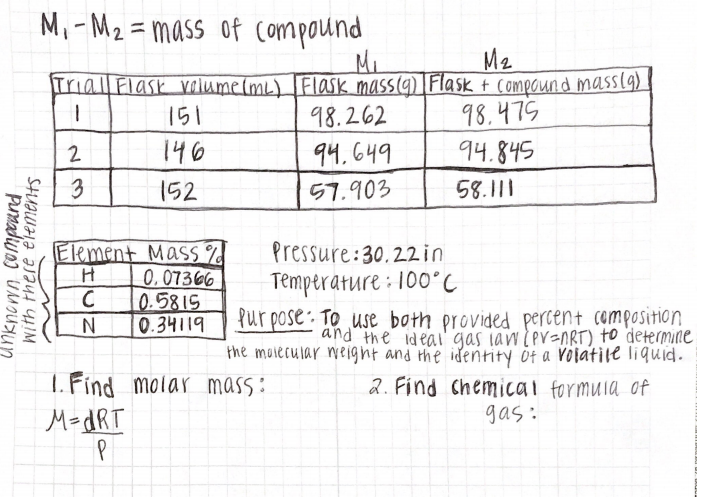 M₁ - M₂ = mass of compound
M₁ M₂
Trial Flask volume (mL) Flask mass (g) Flask + compound mass (g)
1 151 98.262 98.475
2 146 94.649 94.845
3 152 57.903 58.111
unknown compound
with there elements
Element Mass %
H 0.07366
C 0.5815
N 0.34119
Pressure: 30.22 in
Temperature: 100°C
Purpose: To use both provided percent composition
and the ideal gas law (PV=nRT) to determine
the molecular weight and the identity of a volatile liquid.
1. Find molar mass:
M = dRT
P
2. Find chemical formula of
gas: